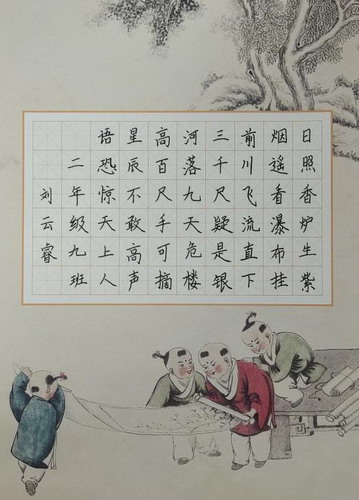 日照香炉生紫
烟遥看瀑布挂
前川飞流直下
三千尺疑是银
河落九天危楼
高百尺手可摘
星辰不敢高声
语恐惊天上人
二年级九班
刘云睿